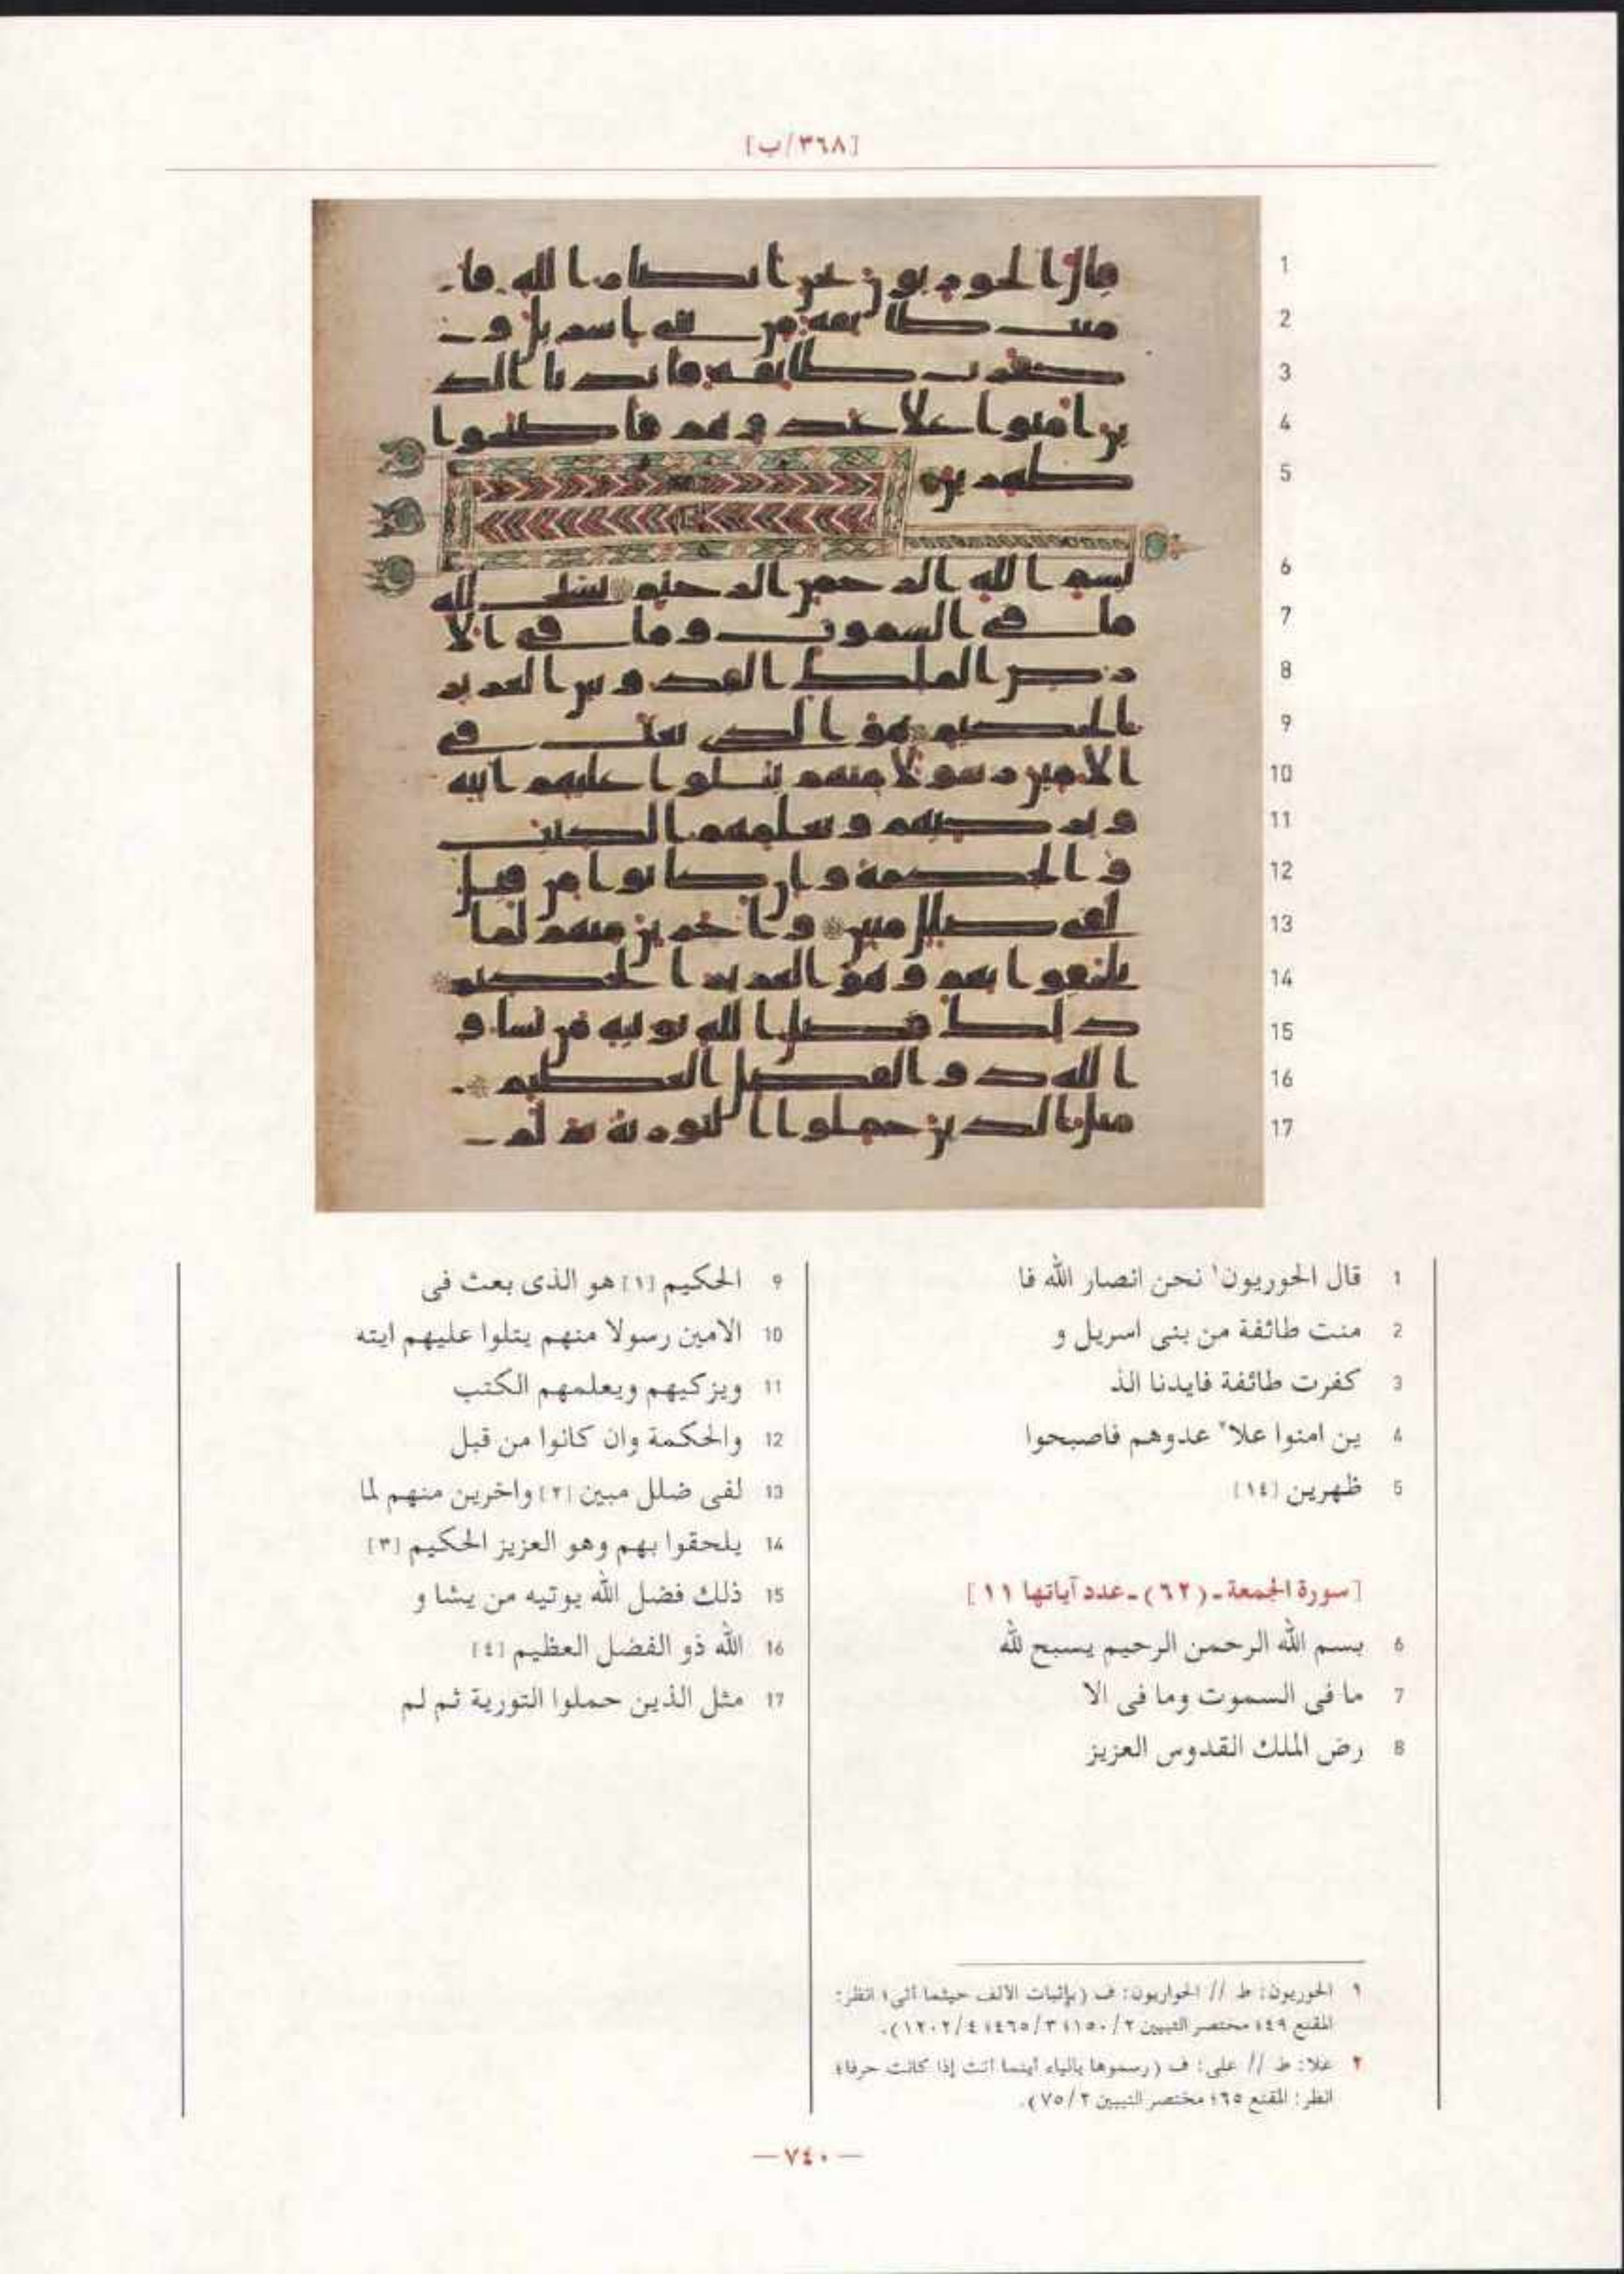 [٣٦٨/ب]
1 قال الحوريون١ نحن انصار الله فا
2 منت طائفة من بنى اسريل و
3 كفرت طائفة فايدنا الذ
4 ين امنوا علا٢ عدوهم فاصبحوا
5 ظهرين [١٤]
[سورة الجمعة ـ (٦٢) ـ عدد آياتها ١١]
6 بسم الله الرحمن الرحيم يسبح لله
7 ما فى السموت وما فى الا
8 رض الملك القدوس العزيز
9 الحكيم [١] هو الذى بعث فى
10 الامين رسولا منهم يتلوا عليهم ايته
11 ويزكيهم ويعلمهم الكتب
12 والحكمة وان كانوا من قبل
13 لفى ضلل مبين [٢] واخرين منهم لما
14 يلحقوا بهم وهو العزيز الحكيم [٣]
15 ذلك فضل الله يوتيه من يشا و
16 الله ذو الفضل العظيم [٤]
17 مثل الذين حملوا التورية ثم لم
١ الحوريون: ط // الحواريون: ف (بإثبات الألف حيثما أتى؛ انظر:
المقنع ٤٩؛ مختصر التبيين ٢/١٥٠؛ ٣/٤٦٥؛ ٤/١٢٠٢).
٢ علا: ط // على: ف (رسموها بالياء أينما أتت إذا كانت حرفا؛
انظر: المقنع ٦٥؛ مختصر التبيين ٢/٧٥).
— ٧٤٠ —